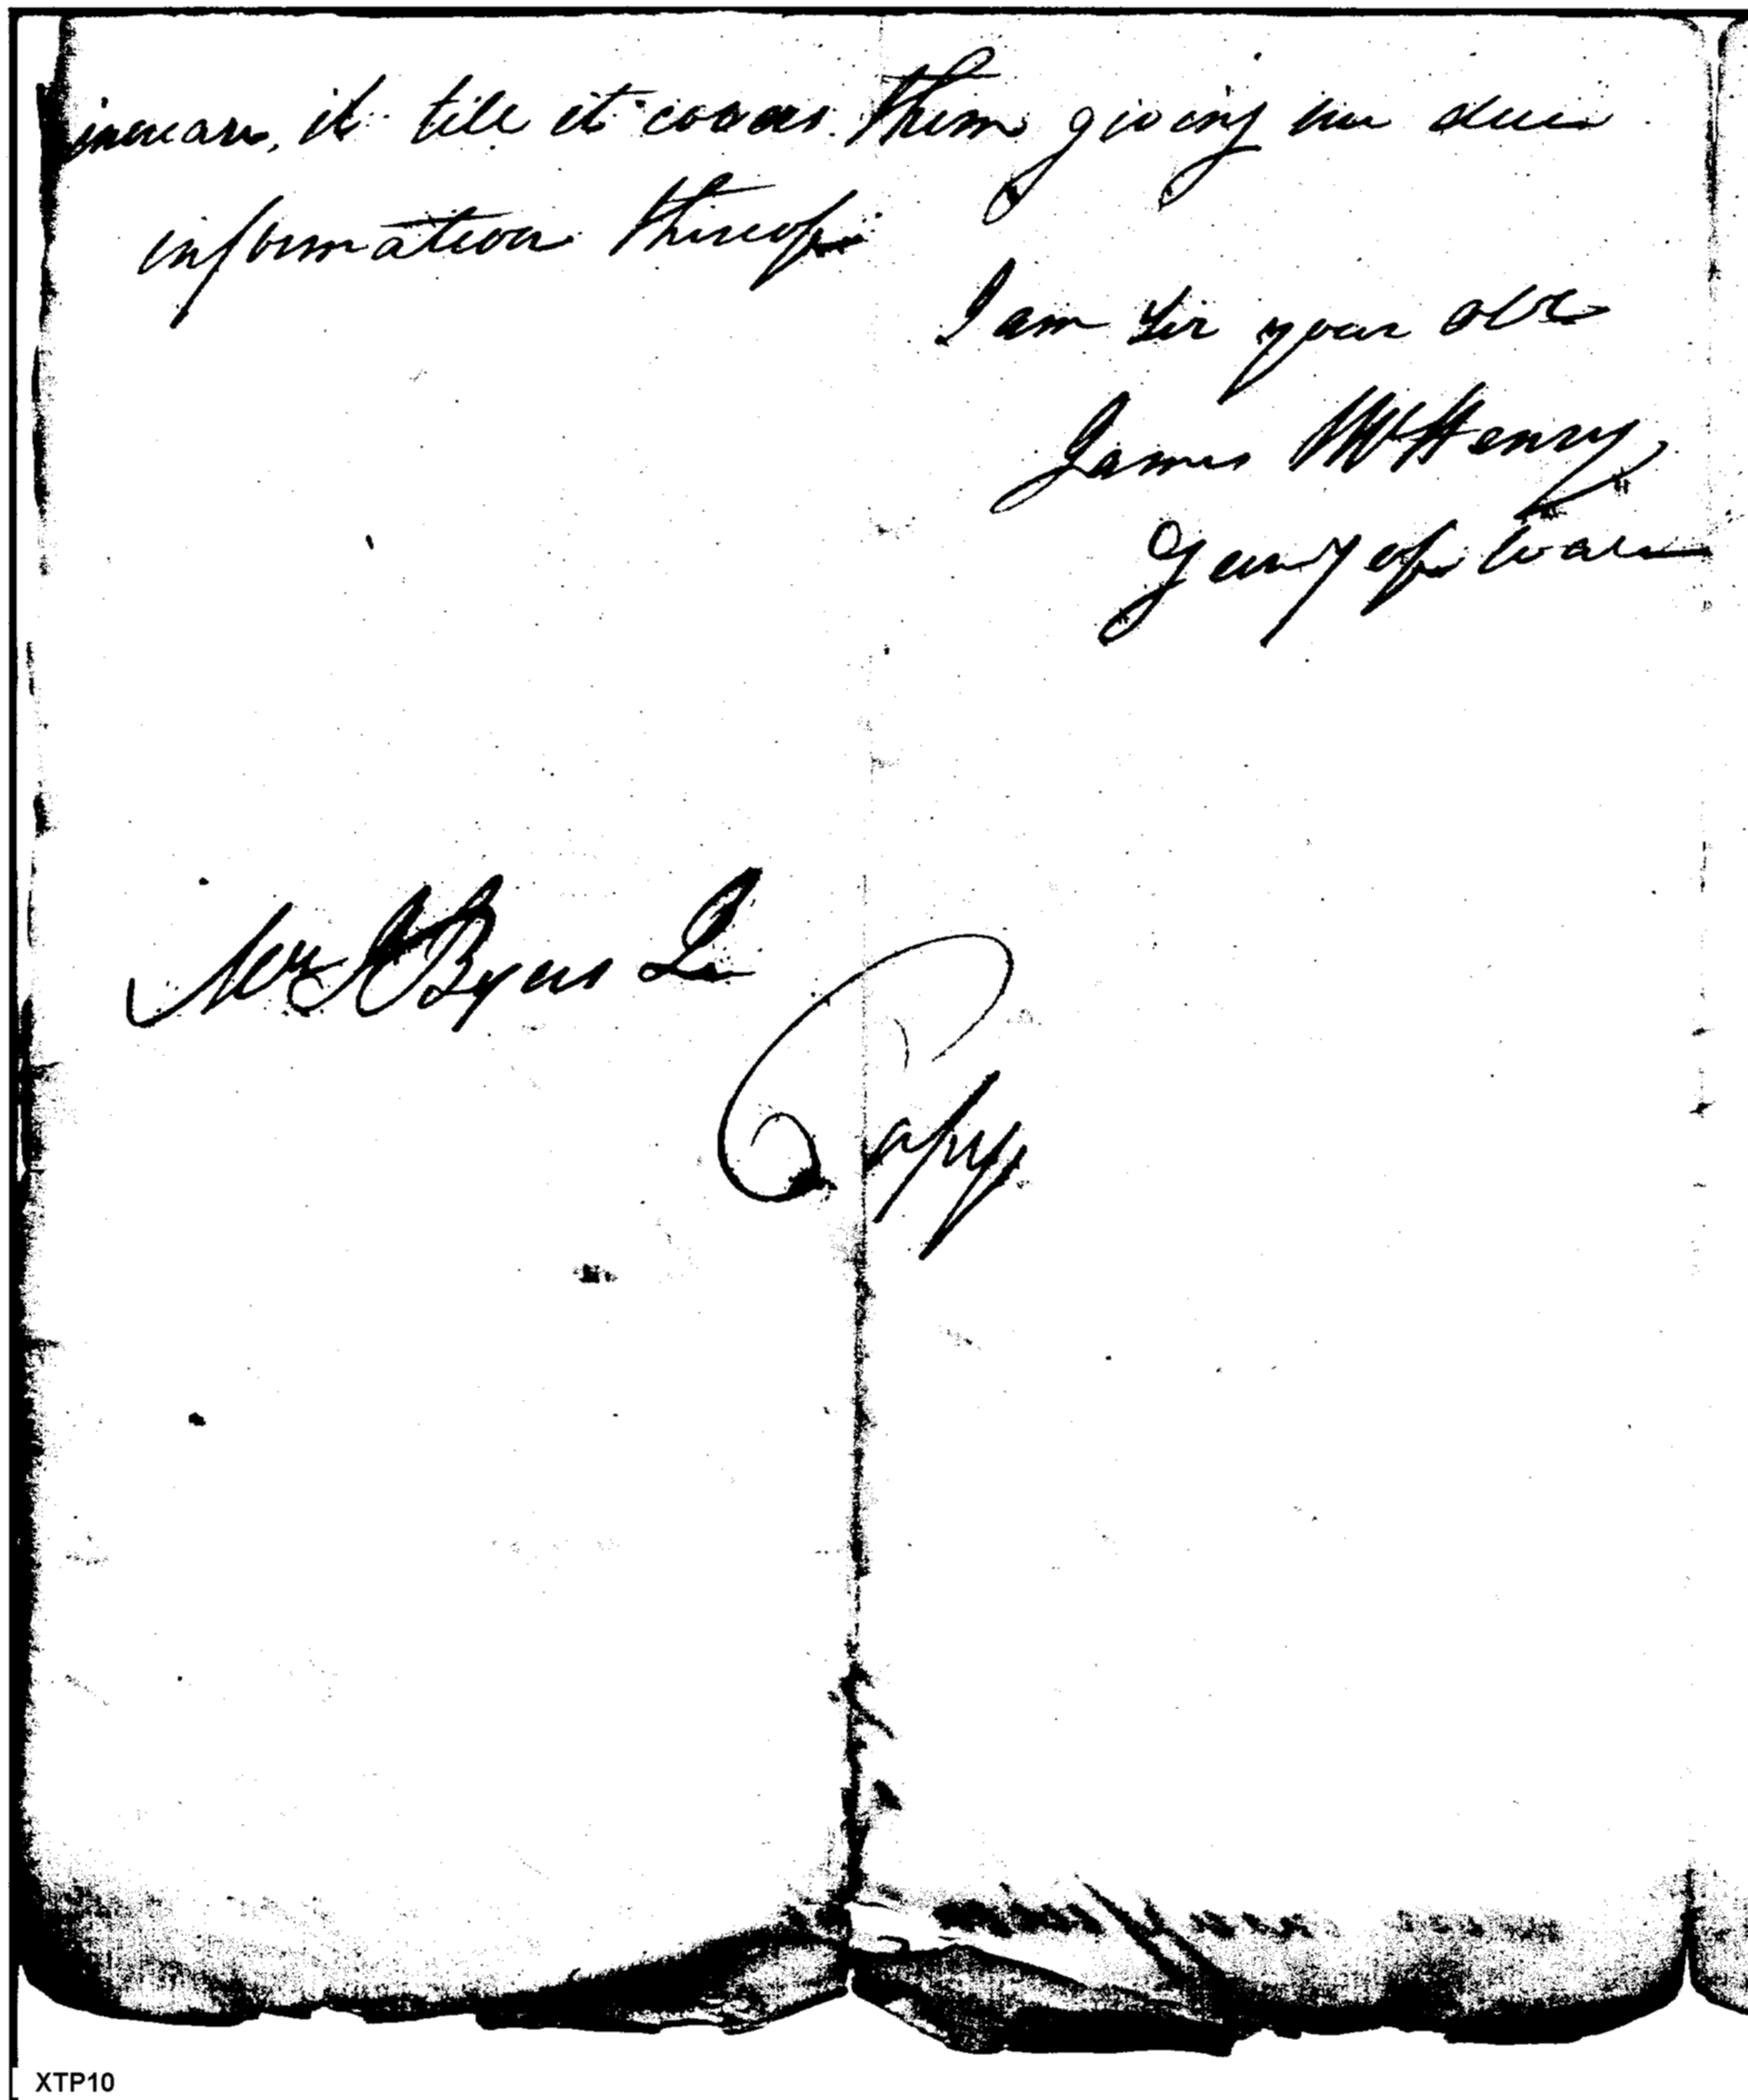 increase, it till it covers them giving me due
information thereof
I am Sir your obt
James McHenry
Secrty of War
Mr J Byers
Copy
XTP10